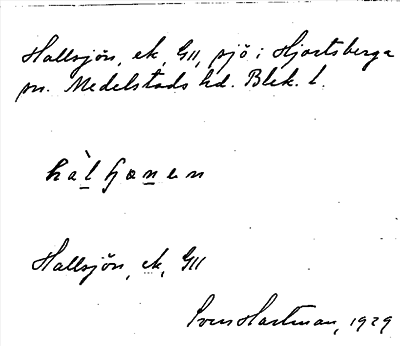 Hallsjön, ek, G11, sjö i Hjortsberga
sn. Medelstads hd. Blek. l.
hàlʃönen
Hallsjön, ek, G11
Sven Hartman, 1929